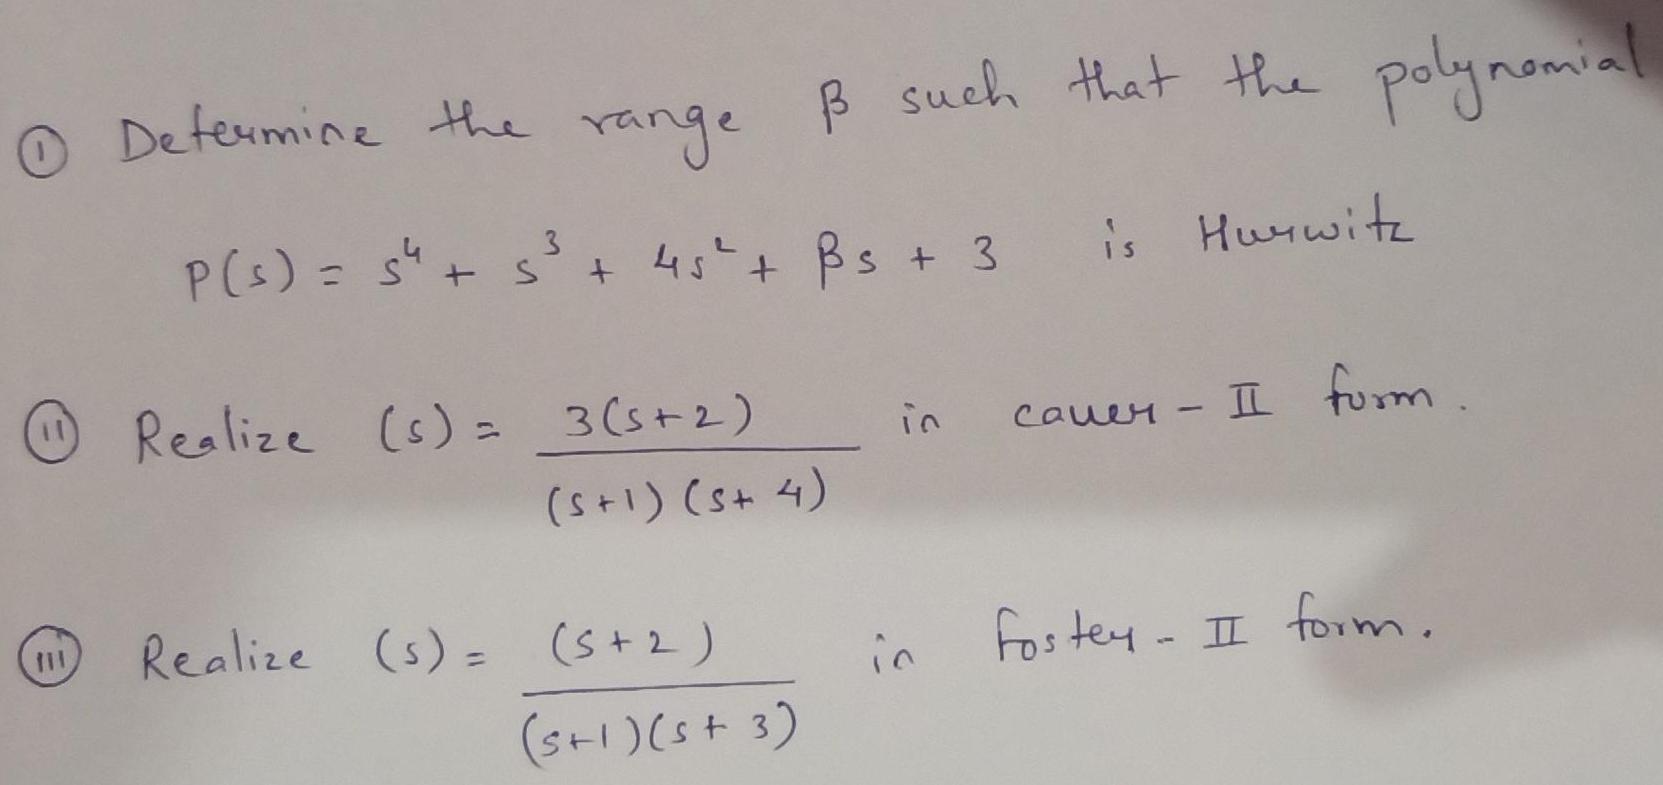 ① Determine the range β such that the polynomial
P(s) = s⁴ + s³ + 4s² + βs + 3 is Hurwitz
ⓘⓘ Realize (s) = 3(s+2) / (s+1)(s+4) in cauer - II form.
ⓘⓘⓘ Realize (s) = (s+2) / (s+1)(s+3) in foster - II form.